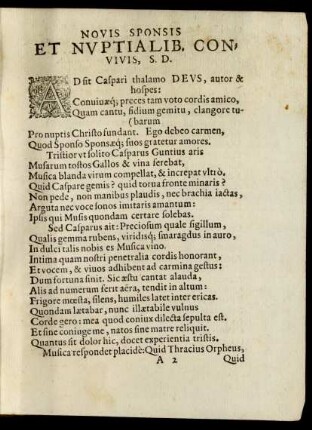 NOVIS SPONSIS
ET NVPTIALIB. CON-
VIVIS, S. D.
ADsit Caspari thalamo DEVS, autor &
hospes:
Conuiuæq́; preces tam voto cordis amico,
Quam cantu, fidium gemitu, clangore tu-
(barum
Pro nuptis Christo fundant. Ego debeo carmen,
Quod Sponso Sponsæq́; suos gratetur amores.
Tristior vt solito Casparus Guntius aris
Musarum tostos Gallos & vina ferebat,
Musica blanda virum compellat, & increpat vltrò.
Quid Caspare gemis? quid torua fronte minaris?
Non pede, non manibus plaudis, nec brachia iactas,
Arguta nec voce sonos imitaris amantum:
Ipsis qui Musis quondam certare solebas.
Sed Casparus ait: Preciosum quale sigillum,
Qualis gemma rubens, viridisq́; smaragdus in auro,
In dulci talis nobis es Musica vino.
Intima quam nostri penetralia cordis honorant,
Et vocem, & viuos adhibent ad carmina gestus:
Dum fortuna sinit. Sic æstu cantat alauda,
Alis ad numerum ferit aëra, tendit in altum:
Frigore mœsta, silens, humiles latet inter ericas.
Quondam lætabar, nunc illætabile vulnus
Corde gero: mea quod coniux dilecta sepulta est.
Et sine coniuge me, natos sine matre reliquit.
Quantus sit dolor hic, docet experientia tristis.
Musica respondet placidè: Quid Thracius Orpheus,
A 2 Quid